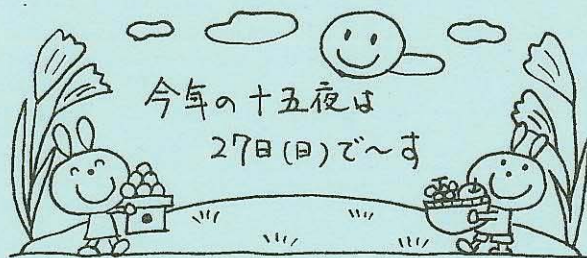 今年の十五夜は
27日(日)で〜す